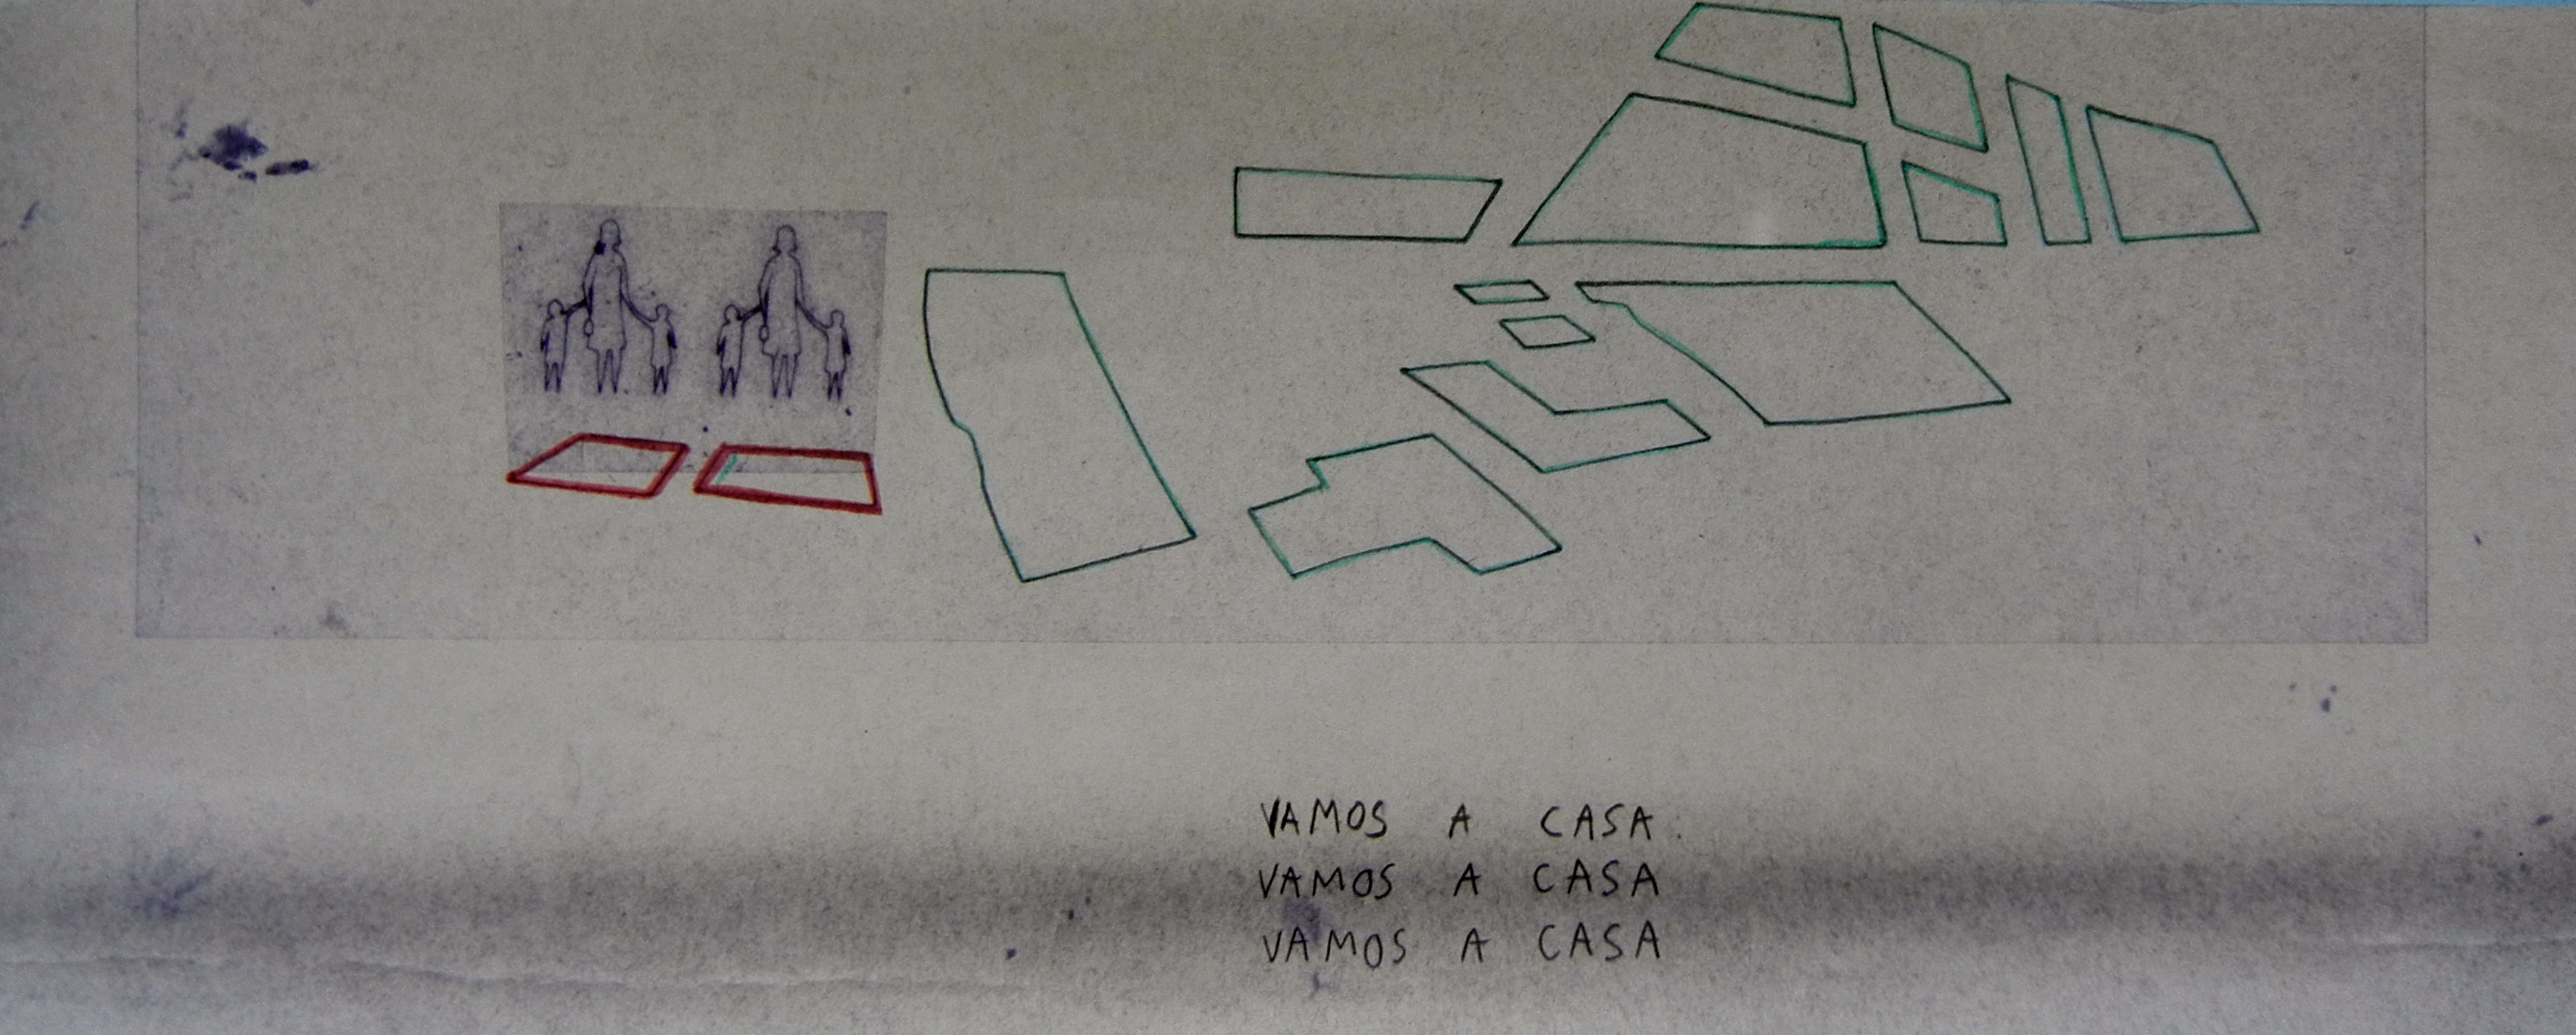 VAMOS A CASA.
VAMOS A CASA
VAMOS A CASA